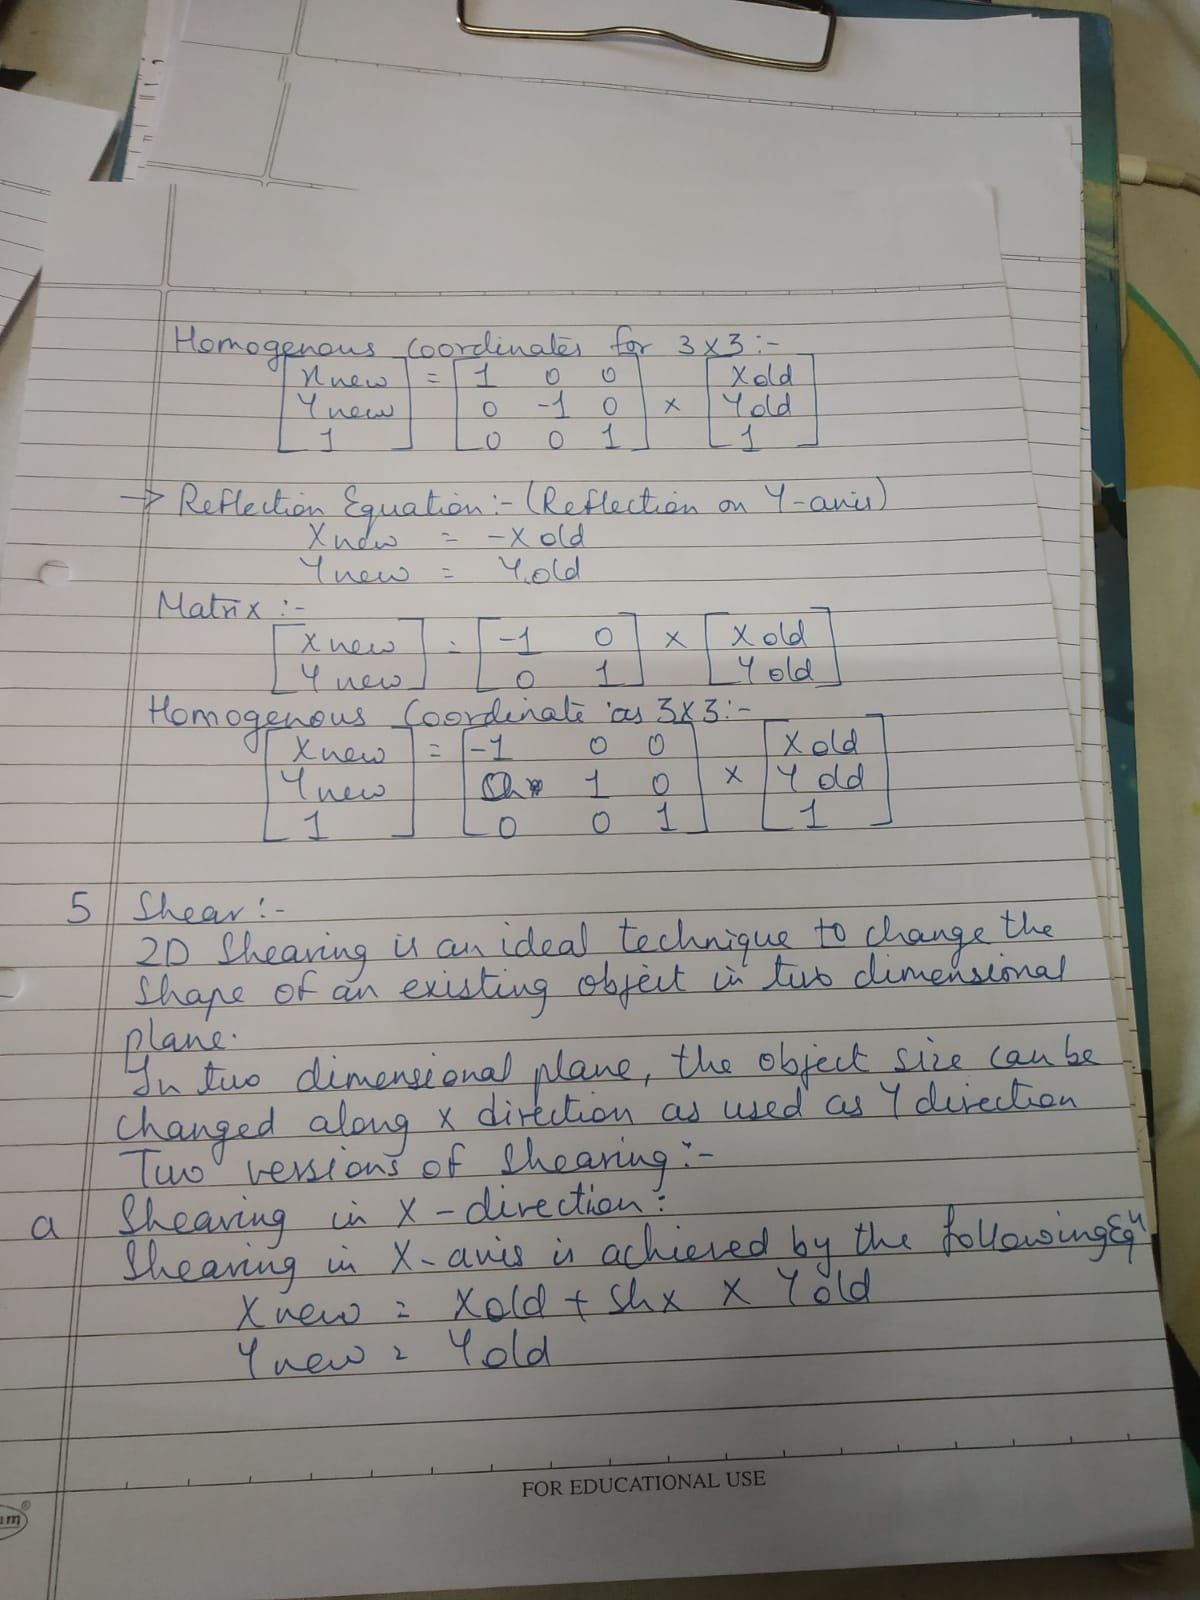 Homogenous Coordinates for 3x3:-
[Xnew] = [1 0 0] [Xold]
[Ynew] [0 -1 0] x [Yold]
[1] [0 0 1] [1]
→ Reflection Equation:- (Reflection on Y-axis)
Xnew = -Xold
Ynew = Yold
Matrix:-
[Xnew] = [-1 0] x [Xold]
[Ynew] [0 1] [Yold]
Homogenous Coordinate as 3x3:-
[Xnew] = [-1 0 0] [Xold]
[Ynew] [Shx 1 0] x [Yold]
[1] [0 0 1] [1]
5 Shear:-
2D Shearing is an ideal technique to change the
shape of an existing object in two dimensional
plane.
In two dimensional plane, the object size can be
changed along x direction as used as Y direction
Two versions of shearing:-
a Shearing in X-direction:
Shearing in X-axis is achieved by the following Eqⁿ
Xnew = Xold + Shx x Yold
Ynew = Yold
FOR EDUCATIONAL USE